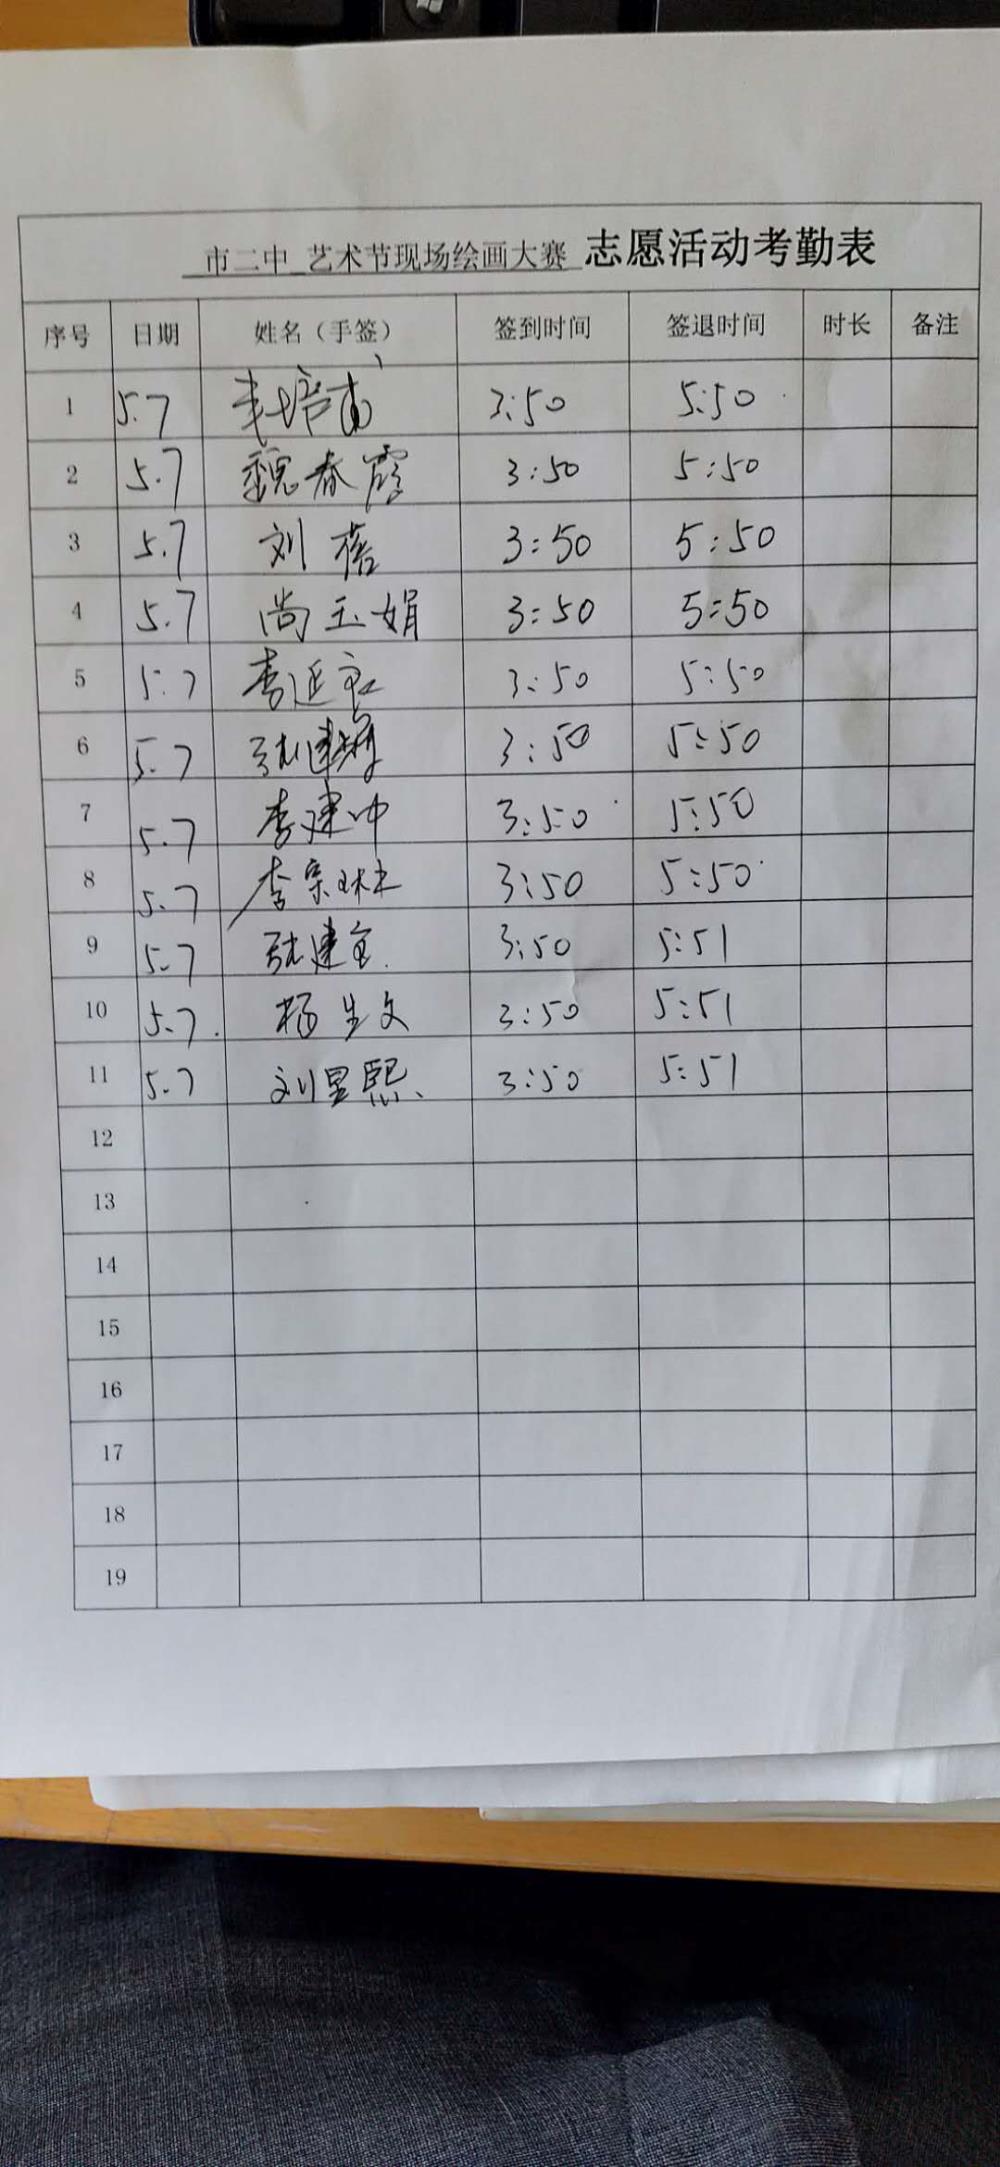 市二中 艺术节现场绘画大赛 志愿活动考勤表
序号 日期 姓名（手签） 签到时间 签退时间 时长 备注
1 5.7 3:50 5:50
2 5.7 魏春霞 3:50 5:50
3 5.7 刘蓓 3:50 5:50
4 5.7 尚玉娟 3:50 5:50
5 5.7 李延 3:50 5:50
6 5.7 张建 3:50 5:50
7 5.7 李建中 3:50 5:50
8 5.7 李宗琳 3:50 5:50
9 5.7 张建 3:50 5:51
10 5.7 杨生文 3:50 5:51
11 5.7 刘昱熙 3:50 5:51
12
13
14
15
16
17
18
19